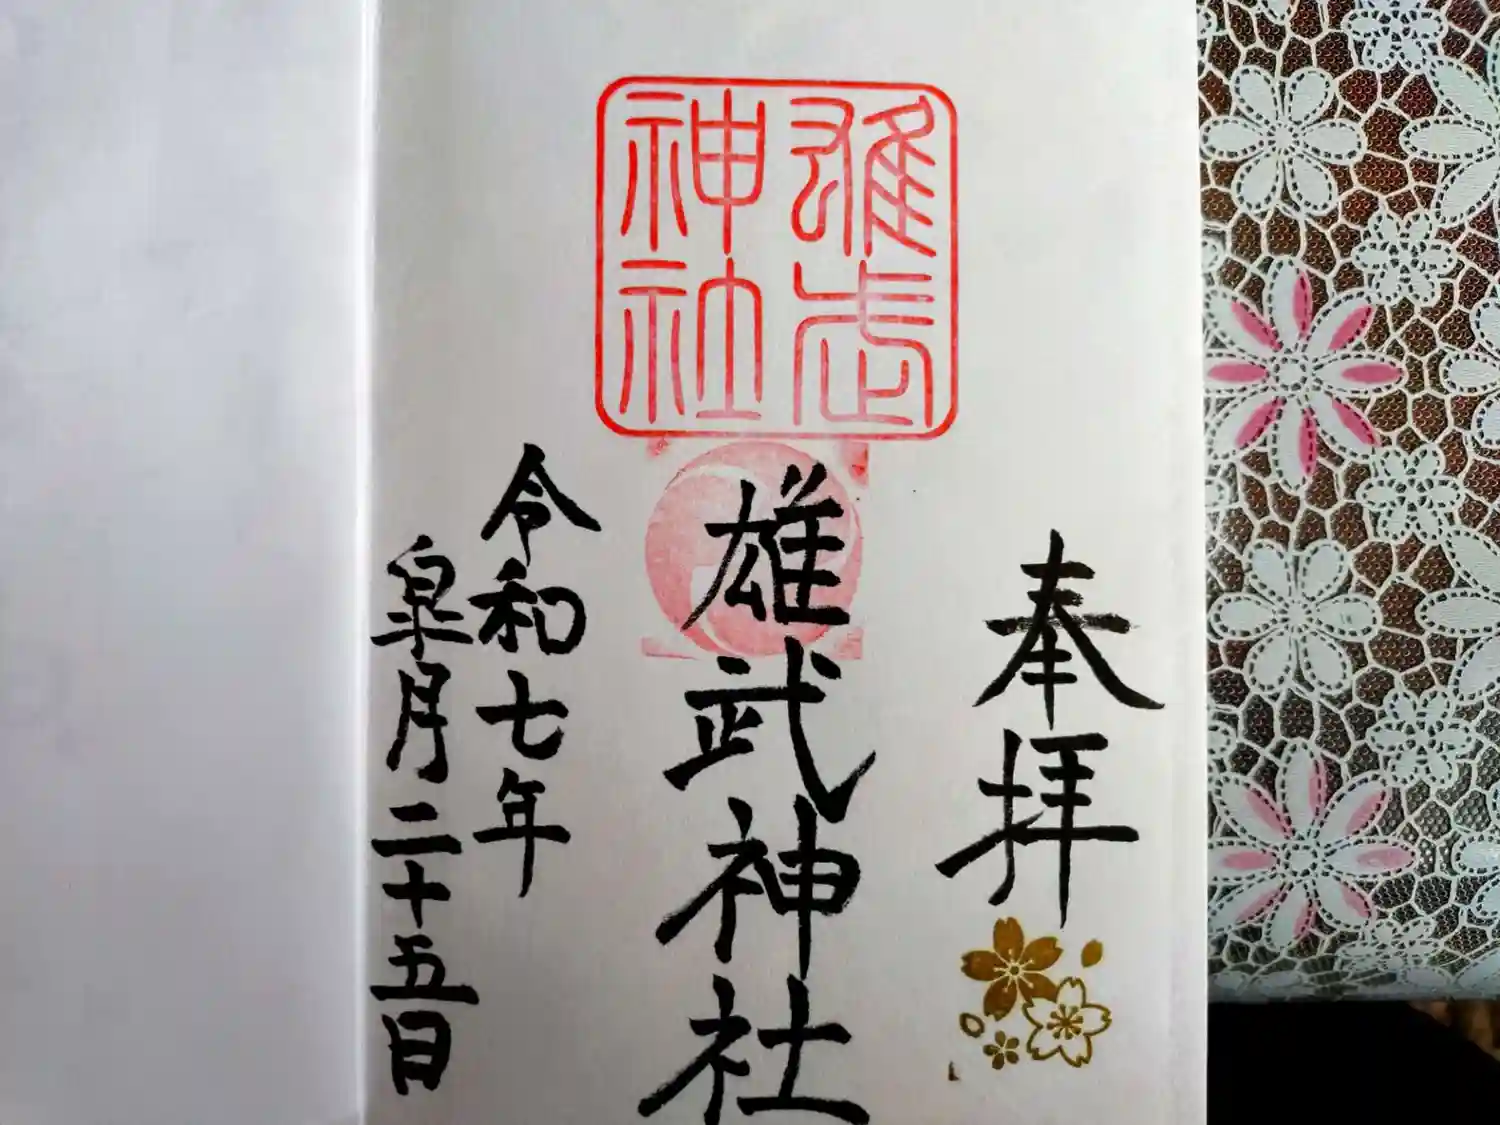 奉拝
雄武
神社
雄武神社
令和七年
皐月二十五日